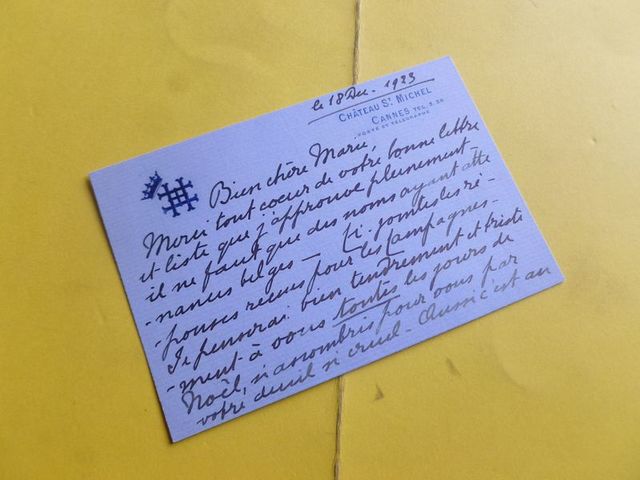 le 18 Dec. 1923
CHÂTEAU ST MICHEL
CANNES. TEL. 5.39
POSTE ET TÉLÉGRAPHE
Bien chère Marie,
Merci tout coeur de votre bonne lettre
et liste que j'approuve pleinement
il ne faut que des noms ayant
-nances belges — Ci-joint les ré-
-ponses reçues pour les Campagnes-
Je penserai bien tendrement et triste
-ment à vous toutes les jours de
Noël, si assombris pour vous par
votre deuil si cruel. Aussi c'est au